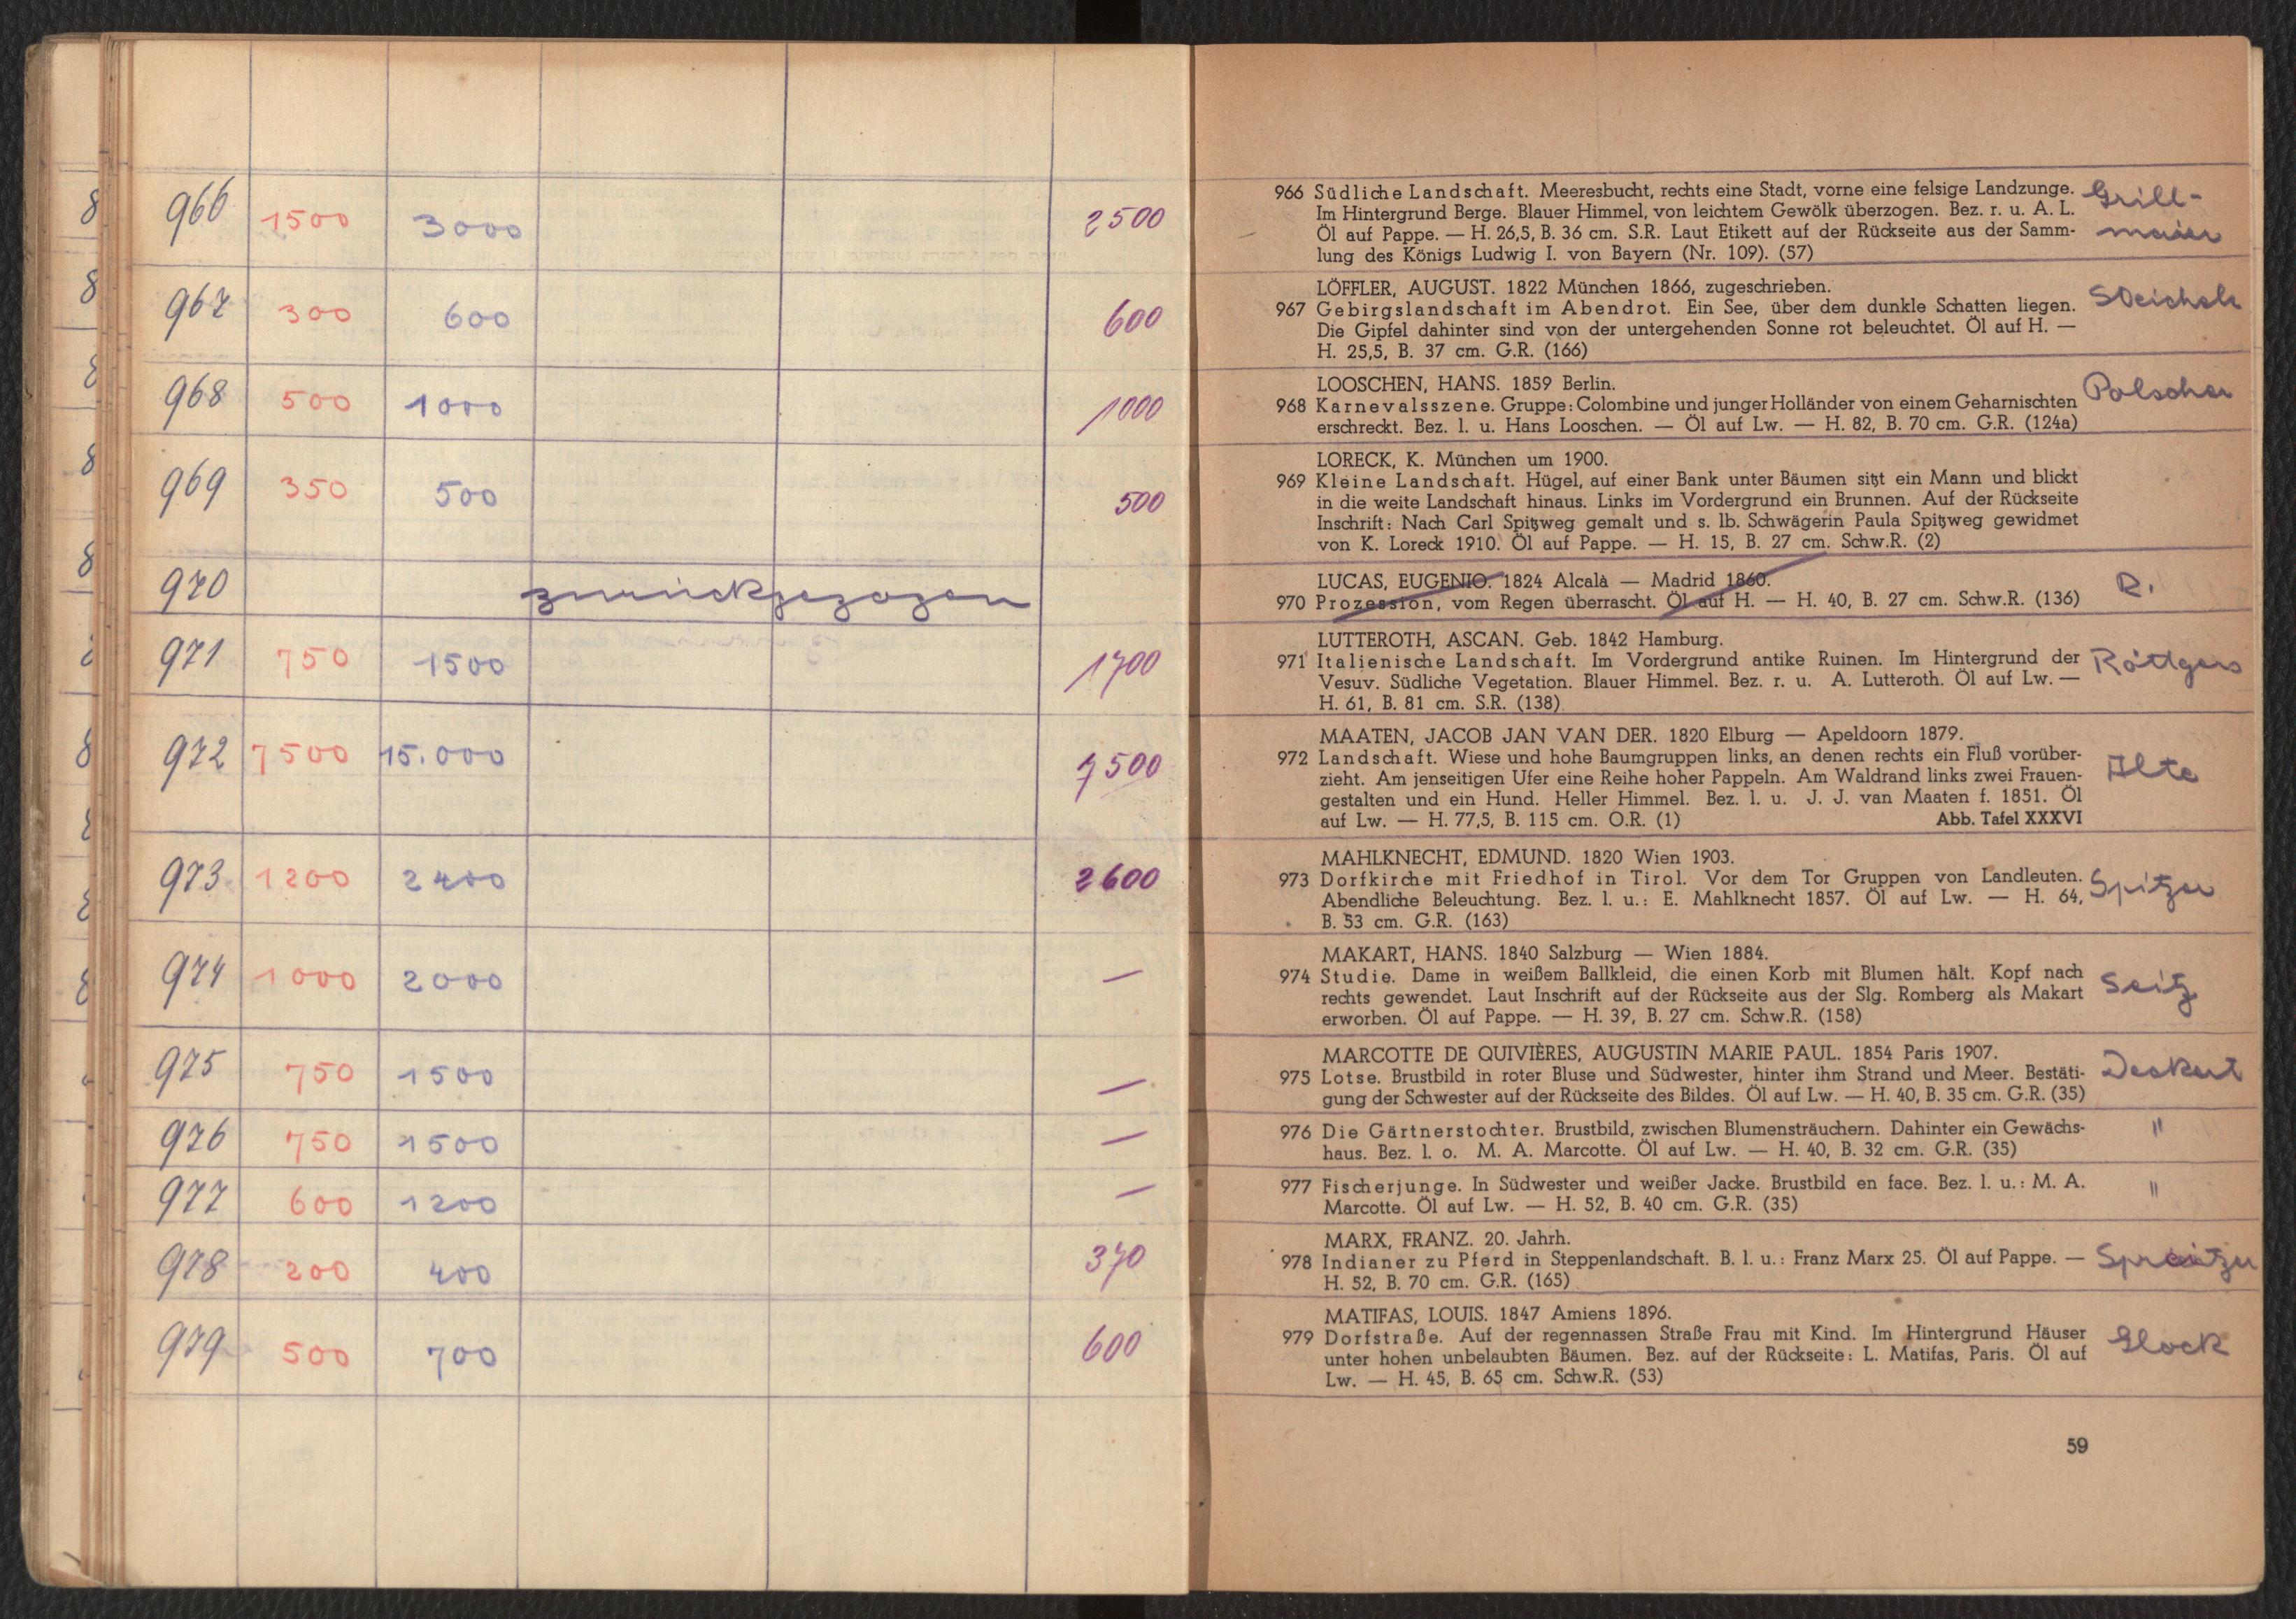 966 1500 3000 2500
967 300 600 600
968 500 1000 1000
969 350 500 500
970 zurückgezogen
971 750 1500 1700
972 7500 15.000 7500
973 1200 2400 2600
974 1000 2000 —
975 750 1500 —
976 750 1500 —
977 600 1200 —
978 200 400 370
979 500 700 600
966 Südliche Landschaft. Meeresbucht, rechts eine Stadt, vorne eine felsige Landzunge. Grill-
Im Hintergrund Berge. Blauer Himmel, von leichtem Gewölk überzogen. Bez. r. u. A. L.
Öl auf Pappe. — H. 26,5, B. 36 cm. S.R. Laut Etikett auf der Rückseite aus der Samm- maier
lung des Königs Ludwig I. von Bayern (Nr. 109). (57)
LÖFFLER, AUGUST. 1822 München 1866, zugeschrieben.
967 Gebirgslandschaft im Abendrot. Ein See, über dem dunkle Schatten liegen.
Die Gipfel dahinter sind von der untergehenden Sonne rot beleuchtet. Öl auf H. —
H. 25,5, B. 37 cm. G.R. (166)
LOOSCHEN, HANS. 1859 Berlin. Polscher
968 Karnevalsszene. Gruppe: Colombine und junger Holländer von einem Geharnischten
erschreckt. Bez. l. u. Hans Looschen. — Öl auf Lw. — H. 82, B. 70 cm. G.R. (124a)
LORECK, K. München um 1900.
969 Kleine Landschaft. Hügel, auf einer Bank unter Bäumen sitzt ein Mann und blickt
in die weite Landschaft hinaus. Links im Vordergrund ein Brunnen. Auf der Rückseite
Inschrift: Nach Carl Spitzweg gemalt und s. lb. Schwägerin Paula Spitzweg gewidmet
von K. Loreck 1910. Öl auf Pappe. — H. 15, B. 27 cm. Schw.R. (2)
LUCAS, EUGENIO. 1824 Alcalà — Madrid 1860. R.
970 Prozession, vom Regen überrascht. Öl auf H. — H. 40, B. 27 cm. Schw.R. (136)
LUTTEROTH, ASCAN. Geb. 1842 Hamburg.
971 Italienische Landschaft. Im Vordergrund antike Ruinen. Im Hintergrund der Röttgers
Vesuv. Südliche Vegetation. Blauer Himmel. Bez. r. u. A. Lutteroth. Öl auf Lw. —
H. 61, B. 81 cm. S.R. (138)
MAATEN, JACOB JAN VAN DER. 1820 Elburg — Apeldoorn 1879.
972 Landschaft. Wiese und hohe Baumgruppen links, an denen rechts ein Fluß vorüber-
zieht. Am jenseitigen Ufer eine Reihe hoher Pappeln. Am Waldrand links zwei Frauen-
gestalten und ein Hund. Heller Himmel. Bez. l. u. J. J. van Maaten f. 1851. Öl
auf Lw. — H. 77,5, B. 115 cm. O.R. (1) Abb. Tafel XXXVI
MAHLKNECHT, EDMUND. 1820 Wien 1903.
973 Dorfkirche mit Friedhof in Tirol. Vor dem Tor Gruppen von Landleuten. Spitzer
Abendliche Beleuchtung. Bez. l. u.: E. Mahlknecht 1857. Öl auf Lw. — H. 64,
B. 53 cm. G.R. (163)
MAKART, HANS. 1840 Salzburg — Wien 1884.
974 Studie. Dame in weißem Ballkleid, die einen Korb mit Blumen hält. Kopf nach Seitz
rechts gewendet. Laut Inschrift auf der Rückseite aus der Slg. Romberg als Makart
erworben. Öl auf Pappe. — H. 39, B. 27 cm. Schw.R. (158)
MARCOTTE DE QUIVIÈRES, AUGUSTIN MARIE PAUL. 1854 Paris 1907.
975 Lotse. Brustbild in roter Bluse und Südwester, hinter ihm Strand und Meer. Bestäti- Deckert
gung der Schwester auf der Rückseite des Bildes. Öl auf Lw. — H. 40, B. 35 cm. G.R. (35)
976 Die Gärtnerstochter. Brustbild, zwischen Blumensträuchern. Dahinter ein Gewächs- "
haus. Bez. l. o. M. A. Marcotte. Öl auf Lw. — H. 40, B. 32 cm. G.R. (35)
977 Fischerjunge. In Südwester und weißer Jacke. Brustbild en face. Bez. l. u.: M. A. "
Marcotte. Öl auf Lw. — H. 52, B. 40 cm. G.R. (35)
MARX, FRANZ. 20. Jahrh.
978 Indianer zu Pferd in Steppenlandschaft. B. l. u.: Franz Marx 25. Öl auf Pappe. —
H. 52, B. 70 cm. G.R. (165)
MATIFAS, LOUIS. 1847 Amiens 1896.
979 Dorfstraße. Auf der regennassen Straße Frau mit Kind. Im Hintergrund Häuser Glock
unter hohen unbelaubten Bäumen. Bez. auf der Rückseite: L. Matifas, Paris. Öl auf
Lw. — H. 45, B. 65 cm. Schw.R. (53)
59